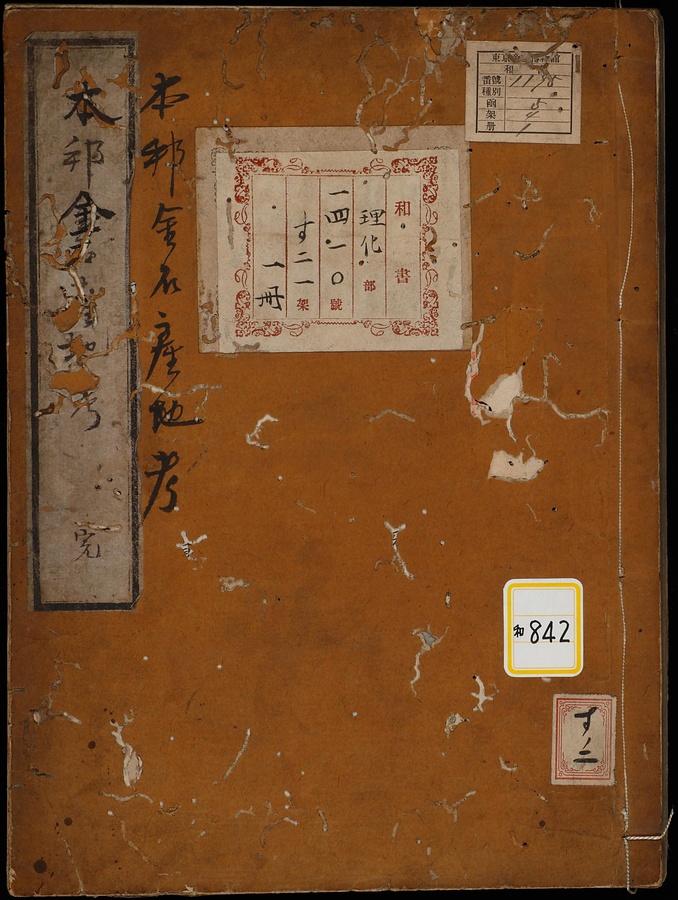 本邦金石産地考
本邦金石産地考
完
和書
理化部
一四一〇號
す二一架
一冊
和
番號 1178
種別
函 5
架 4
册 1
和842
す二